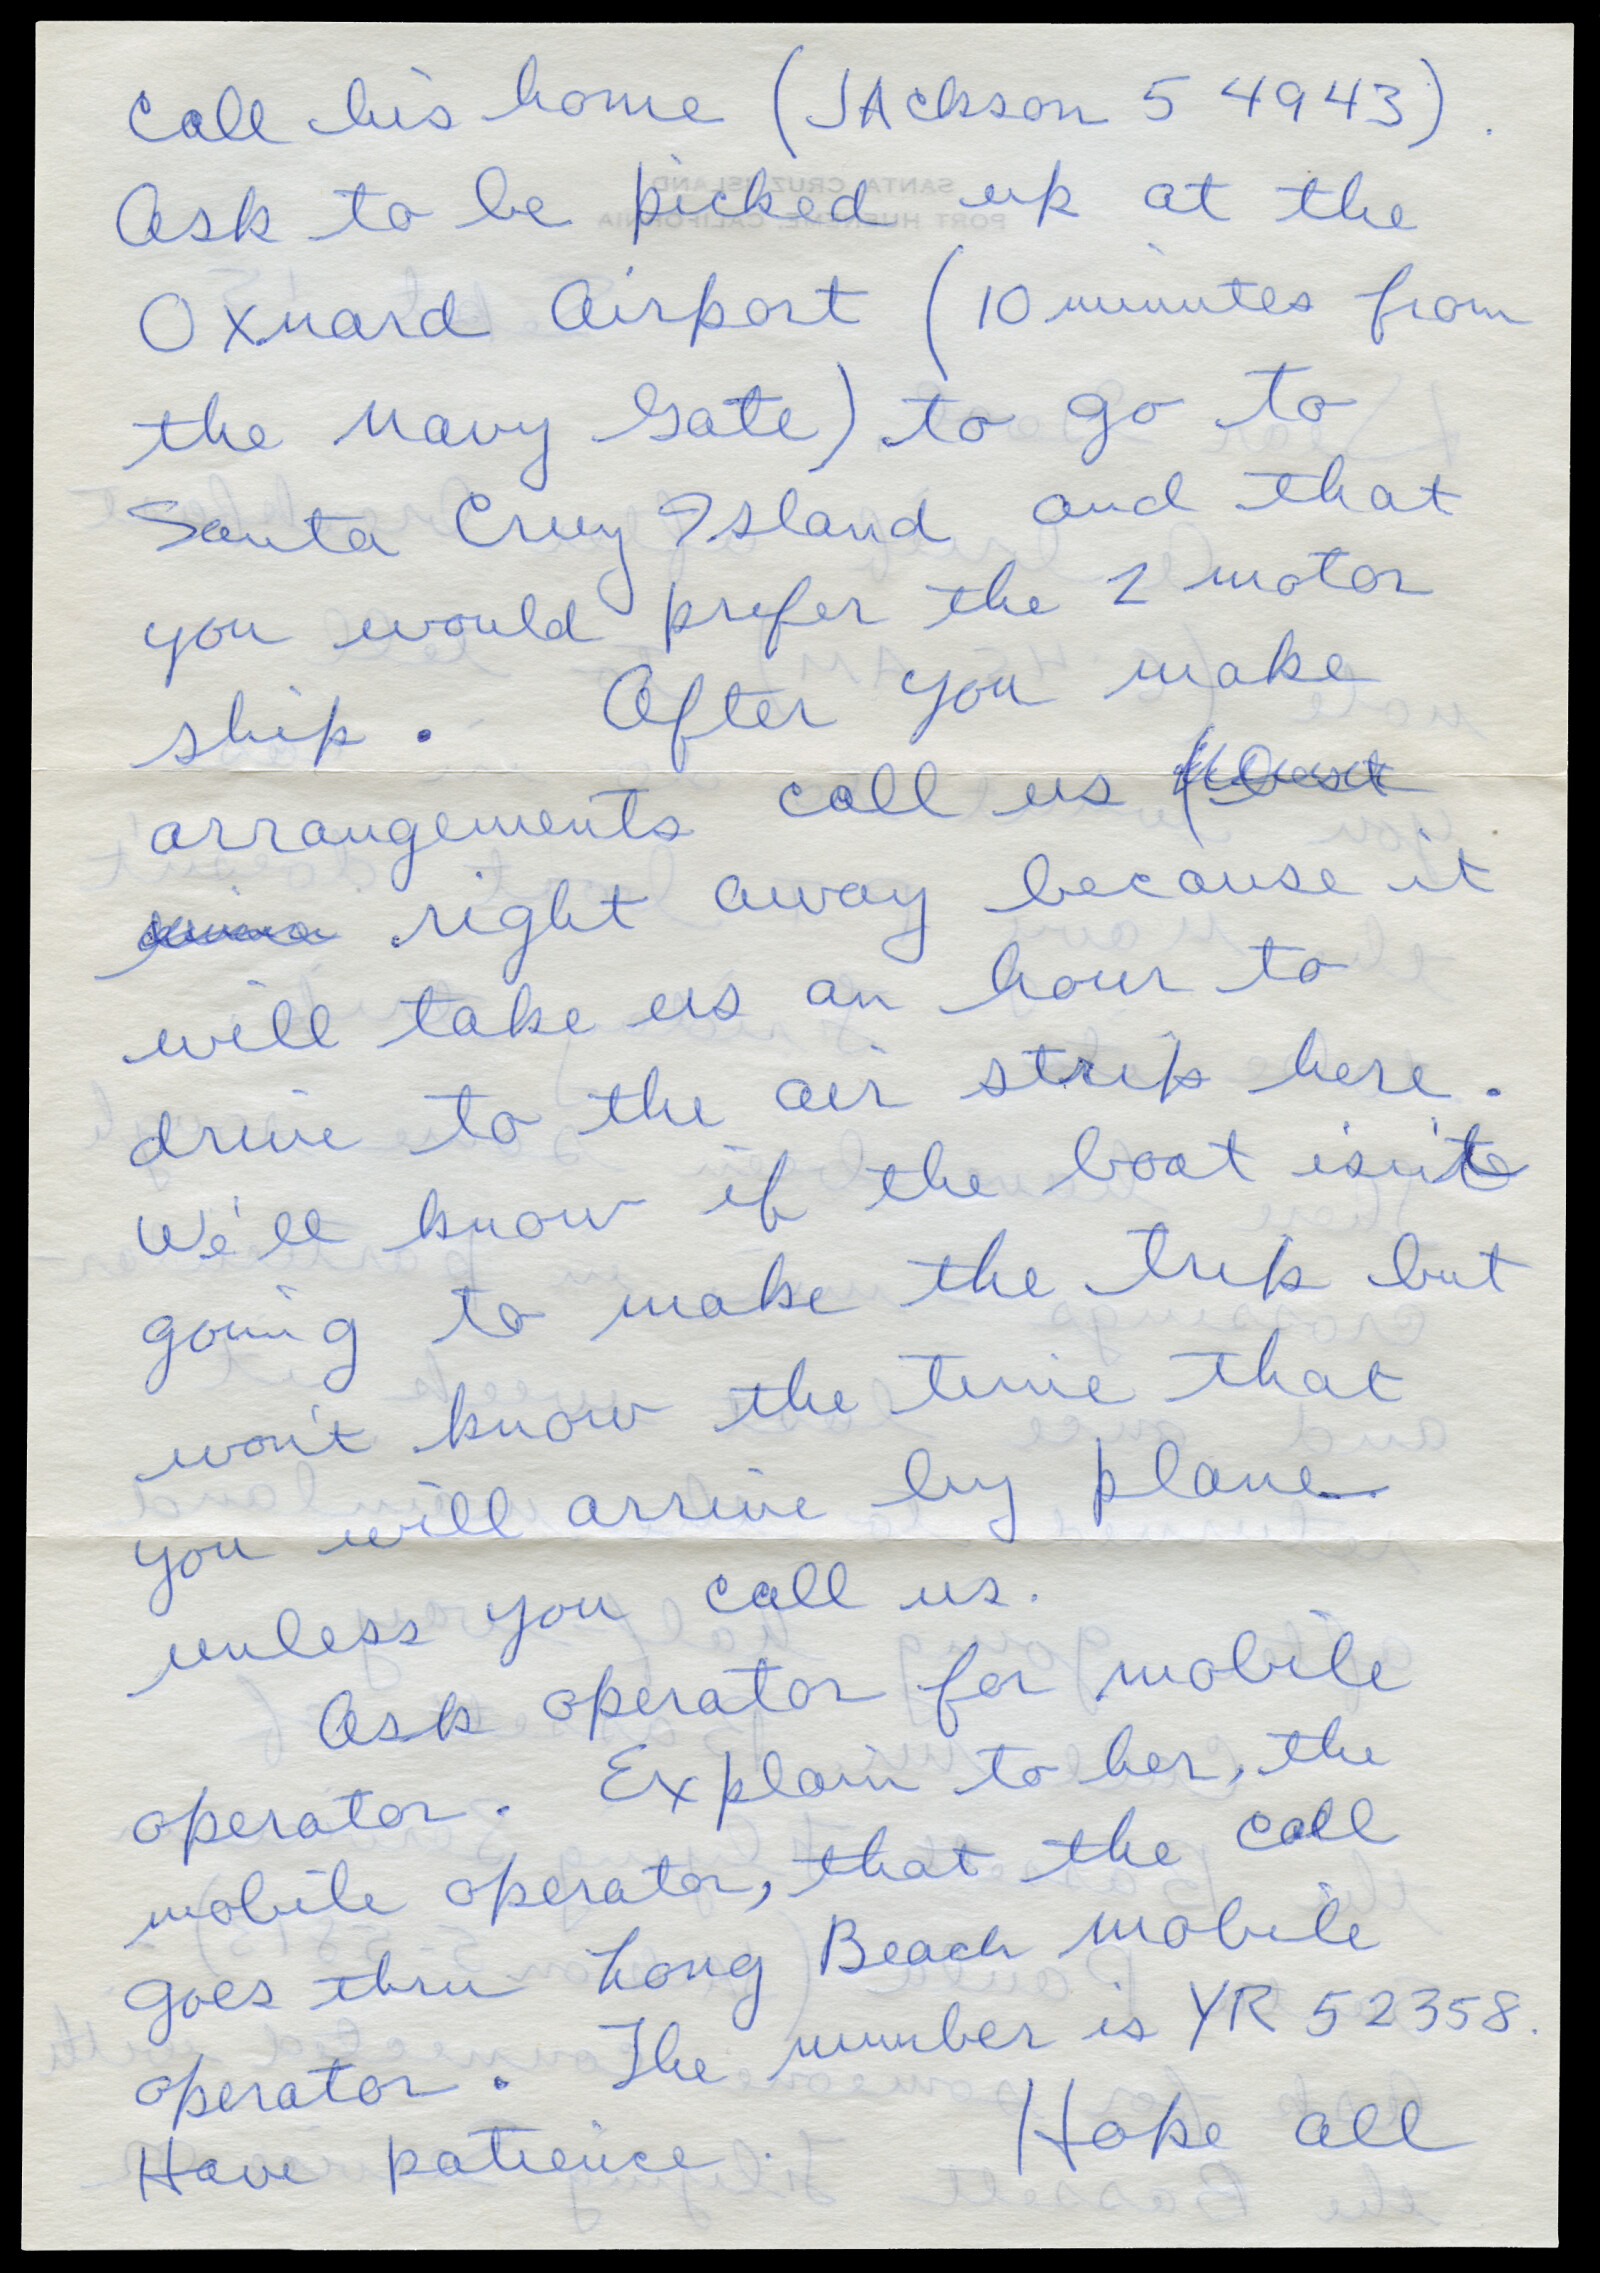 call his home (JAckson 5 4943).
Ask to be picked up at the
Oxnard Airport (10 minutes from
the Navy Gate) to go to
Santa Cruz Island and that
you would prefer the 2 motor
ship. After you make
arrangements call us
right away because it
will take us an hour to
drive to the air strip here.
We'll know if the boat isn't
going to make the trip but
won't know the time that
you will arrive by plane
unless you call us.
Ask operator for mobile
operator. Explain to her, the
mobile operator, that the call
goes thru Long Beach mobile
operator. The number is YR 52358.
Have patience. Hope all